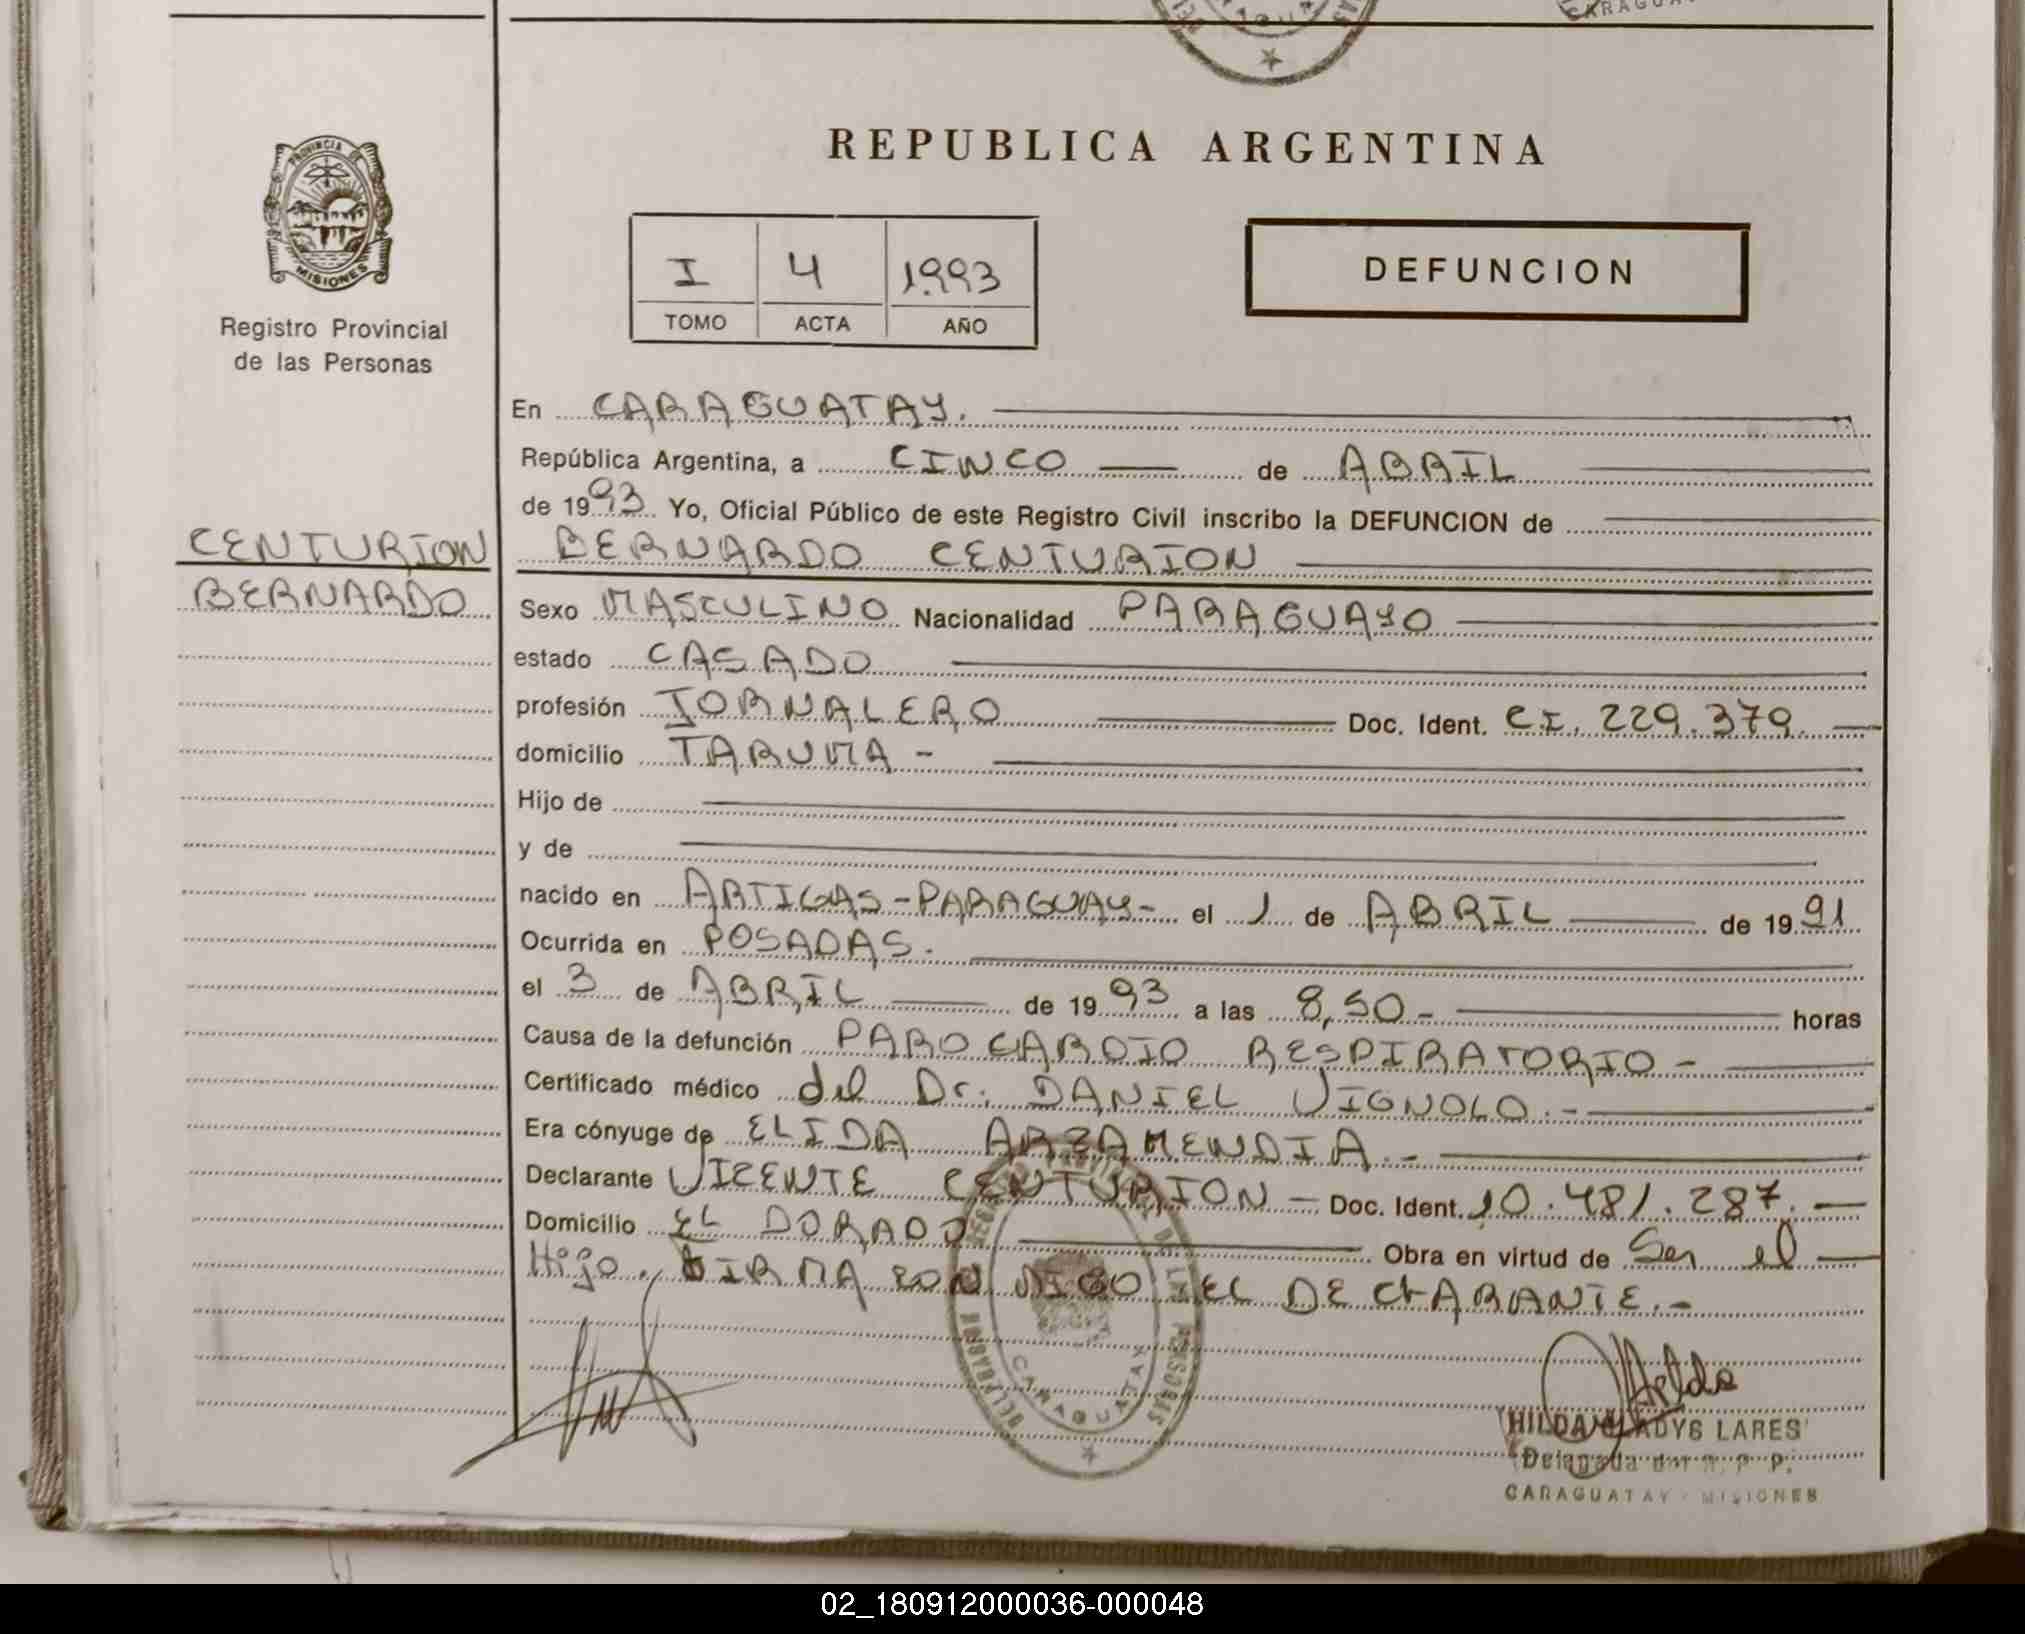 CARAGUA
REPUBLICA ARGENTINA
PROVINCIA DE
MISIONES
Registro Provincial
de las Personas
I 4 1993
TOMO ACTA AÑO
DEFUNCION
En CARAGUATAY.
República Argentina, a CINCO de ABRIL
de 1993 Yo, Oficial Público de este Registro Civil inscribo la DEFUNCION de
CENTURION
BERNARDO
BERNARDO CENTURION
Sexo MASCULINO Nacionalidad PARAGUAYO
estado CASADO
profesión JORNALERO Doc. Ident. CI. 229.379.
domicilio TARUMA -
Hijo de
y de
nacido en ARTIGAS-PARAGUAY- el 1 de ABRIL de 1991
Ocurrida en POSADAS.
el 3 de ABRIL de 1993 a las 8,50 - horas
Causa de la defunción PARO CARDIO RESPIRATORIO -
Certificado médico del Dr. DANIEL VIGNOLO.-
Era cónyuge de ELIDA ARZAMENDIA.-
Declarante VICENTE CENTURION - Doc. Ident. 10.481.287.
Domicilio EL DORADO Obra en virtud de Ser el
Hijo. FIRMA CON MIGO EL DECLARANTE.-
DE LAS PERSONAS
CARAGUATAY
Hilda
HILDA GLADYS LARES
Delegada del R. P. P.
CARAGUATAY - MISIONES
02_180912000036-000048